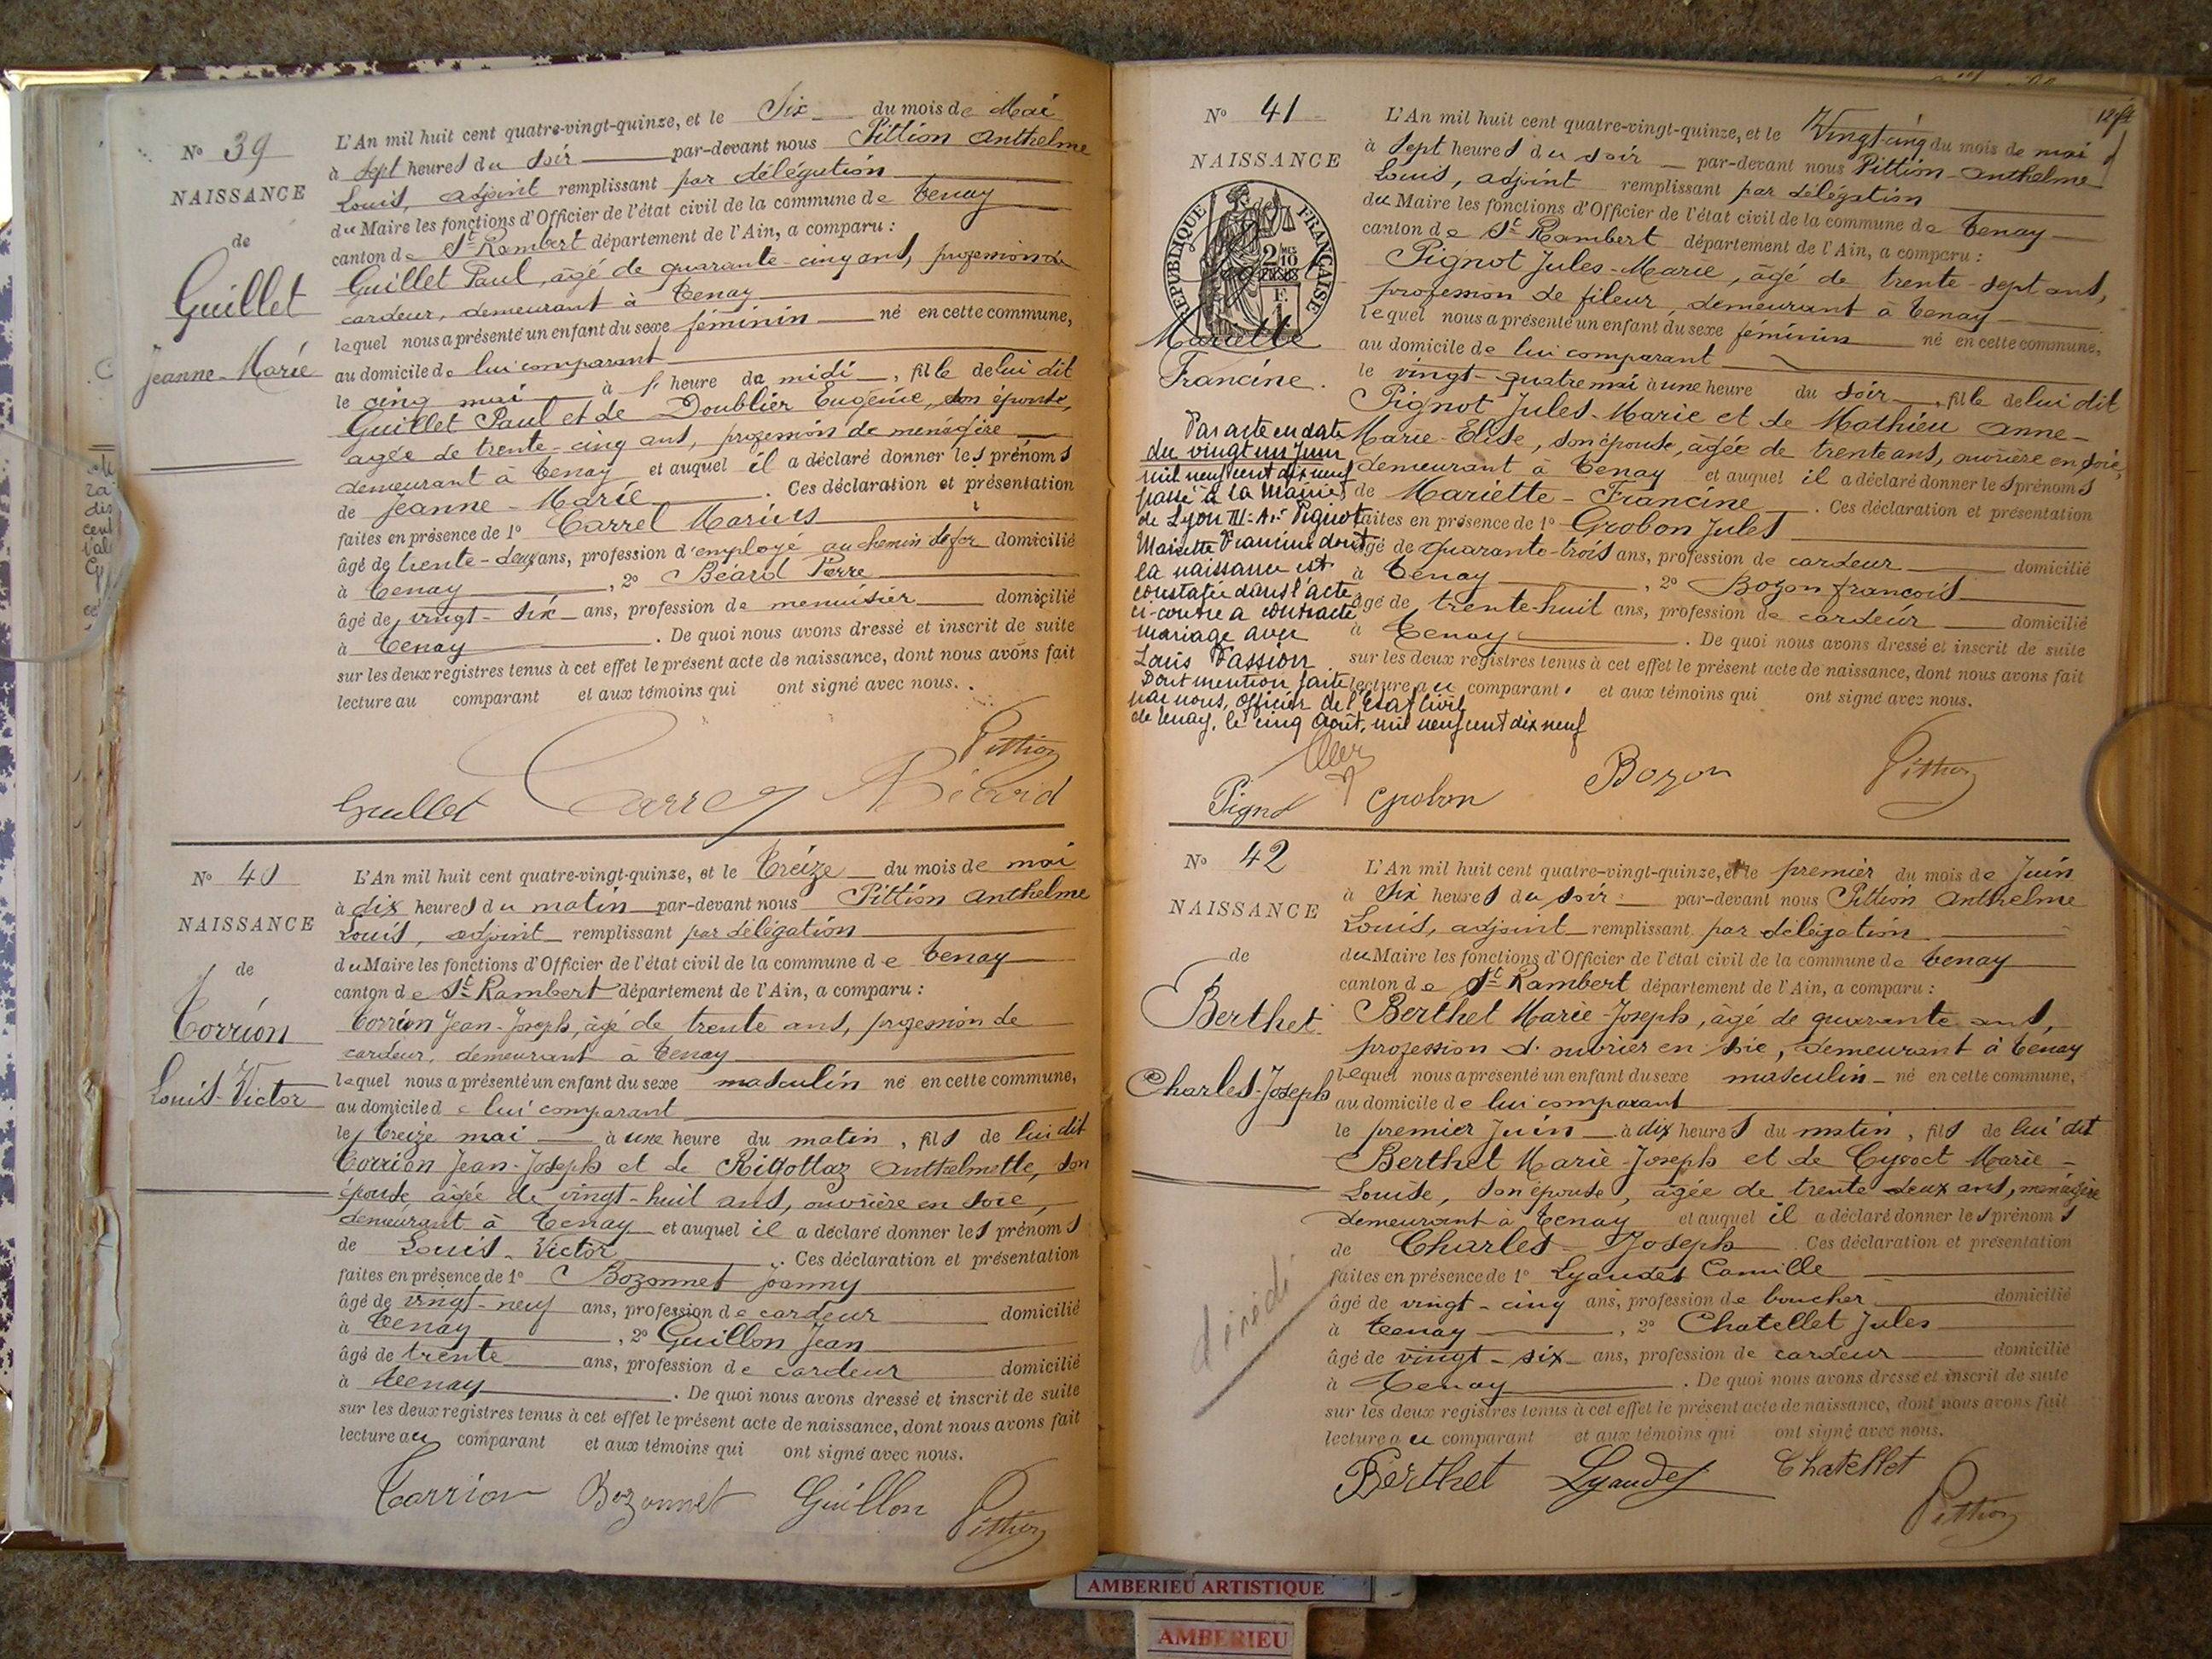 Nº 39
NAISSANCE
de
Guillet
Jeanne-Marie
L'An mil huit cent quatre-vingt-quinze, et le Six du mois de Mai
à sept heures du soir par-devant nous Pittion Anthelme
Louis, adjoint remplissant par délégation
du Maire les fonctions d'Officier de l'état civil de la commune de Tenay
canton de St Rambert département de l'Ain, a comparu :
Guillet Paul, âgé de quarante-cinq ans, profession de
cardeur, demeurant à Tenay
lequel nous a présenté un enfant du sexe féminin né en cette commune,
au domicile de lui comparant
le cinq mai à heure de midi, fille de lui dit
Guillet Paul et de Doublier Eugénie, son épouse,
âgée de trente-cinq ans, profession de ménagère
demeurant à Tenay et auquel il a déclaré donner les prénoms
de Jeanne-Marie. Ces déclaration et présentation
faites en présence de 1º Carrel Marius
âgé de trente-deux ans, profession d'employé au chemin de fer domicilié
à Tenay, 2º Béard Pierre
âgé de vingt-six ans, profession de menuisier domicilié
à Tenay. De quoi nous avons dressé et inscrit de suite
sur les deux registres tenus à cet effet le présent acte de naissance, dont nous avons fait
lecture au comparant et aux témoins qui ont signé avec nous.
Pittion
Guillet Carrel Béard
Nº 40
NAISSANCE
de
Torrion
Louis-Victor
L'An mil huit cent quatre-vingt-quinze, et le Treize du mois de mai
à dix heures du matin par-devant nous Pittion Anthelme
Louis, adjoint remplissant par délégation
du Maire les fonctions d'Officier de l'état civil de la commune de Tenay
canton de St Rambert département de l'Ain, a comparu :
Torrion Jean-Joseph, âgé de trente ans, profession de
cardeur, demeurant à Tenay
lequel nous a présenté un enfant du sexe masculin né en cette commune,
au domicile de lui comparant
le treize mai à une heure du matin, fils de lui dit
Torrion Jean-Joseph et de Rigottaz Anthelmette, son
épouse, âgée de vingt-huit ans, ouvrière en soie,
demeurant à Tenay et auquel il a déclaré donner les prénoms
de Louis-Victor. Ces déclaration et présentation
faites en présence de 1º Bozonnet Joanny
âgé de vingt-neuf ans, profession de cardeur domicilié
à Tenay, 2º Guillon Jean
âgé de trente ans, profession de cardeur domicilié
à Tenay. De quoi nous avons dressé et inscrit de suite
sur les deux registres tenus à cet effet le présent acte de naissance, dont nous avons fait
lecture au comparant et aux témoins qui ont signé avec nous.
Torrion Bozonnet Guillon Pittion
Nº 41
NAISSANCE
de
RÉPUBLIQUE FRANÇAISE
Mariette
Francine.
Par acte en date
du vingt un Juin
mil neuf cent dix neuf
passé à la Mairie
de Lyon III Arr Pignot
Mariette Francine dont
la naissance est
constatée dans l'acte
ci-contre a contracté
mariage avec
Louis Passion
Dont mention faite
par nous, Officier de l'Etat Civil
de Tenay, le cinq Août, mil neuf cent dix neuf
L'An mil huit cent quatre-vingt-quinze, et le Vingt-cinq du mois de mai
à sept heures du soir par-devant nous Pittion-Anthelme
Louis, adjoint remplissant par délégation
du Maire les fonctions d'Officier de l'état civil de la commune de Tenay
canton de St Rambert département de l'Ain, a comparu :
Pignot Jules-Marie, âgé de trente-sept ans,
profession de fileur, demeurant à Tenay
lequel nous a présenté un enfant du sexe féminin né en cette commune,
au domicile de lui comparant
le vingt-quatre mai à une heure du soir, fille de lui dit
Pignot Jules-Marie et de Mathieu Anne-
Marie-Elise, son épouse, âgée de trente ans, ouvrière en soie,
demeurant à Tenay et auquel il a déclaré donner les prénoms
de Mariette-Francine. Ces déclaration et présentation
faites en présence de 1º Grobon Jules
âgé de quarante-trois ans, profession de cardeur domicilié
à Tenay, 2º Bozon françois
âgé de trente-huit ans, profession de cardeur domicilié
à Tenay. De quoi nous avons dressé et inscrit de suite
sur les deux registres tenus à cet effet le présent acte de naissance, dont nous avons fait
lecture au comparant et aux témoins qui ont signé avec nous.
Pignot Grobon Bozon Pittion
Nº 42
NAISSANCE
de
Berthet
Charles-Joseph
L'An mil huit cent quatre-vingt-quinze, et le premier du mois de Juin
à six heures du soir par-devant nous Pittion Anthelme
Louis, adjoint remplissant par délégation
du Maire les fonctions d'Officier de l'état civil de la commune de Tenay
canton de St Rambert département de l'Ain, a comparu :
Berthet Marie-Joseph, âgé de quarante ans,
profession d'ouvrier en soie, demeurant à Tenay
lequel nous a présenté un enfant du sexe masculin né en cette commune,
au domicile de lui comparant
le premier Juin à dix heures du matin, fils de lui dit
Berthet Marie-Joseph et de Marie-
Louise, son épouse, âgée de trente deux ans, ménagère
demeurant à Tenay et auquel il a déclaré donner les prénoms
de Charles-Joseph Ces déclaration et présentation
faites en présence de 1º Lyaudet Camille
âgé de vingt-cinq ans, profession de boucher domicilié
à Tenay, 2º Chatellet Jules
âgé de vingt-six ans, profession de cardeur domicilié
à Tenay. De quoi nous avons dressé et inscrit de suite
sur les deux registres tenus à cet effet le présent acte de naissance, dont nous avons fait
lecture au comparant et aux témoins qui ont signé avec nous.
Berthet Lyaudet Chatellet Pittion
AMBERIEU ARTISTIQUE
AMBERIEU